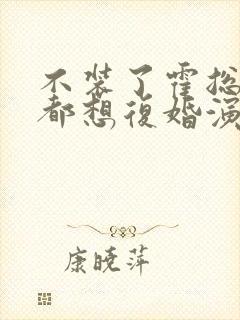 不装了霍总
都想復婚演
康晓萍